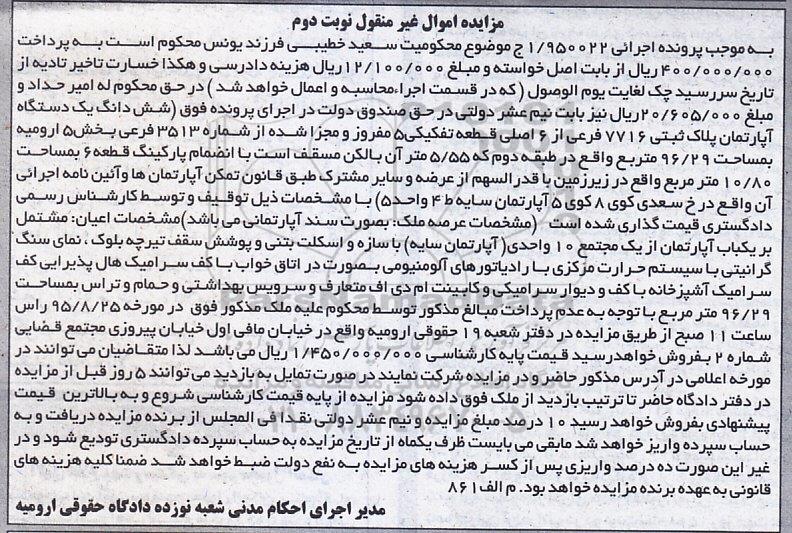 مزایده اموال غیر منقول نوبت دوم
به موجب پرونده اجرائی ۱/۹۵۰۰۲۲ ج موضوع محکومیت سعید خطیبی فرزند یونس محکوم است به پرداخت
۴۰۰/۰۰۰/۰۰۰ ریال از بابت اصل خواسته و مبلغ ۱۲/۱۰۰/۰۰۰ ریال هزینه دادرسی و هکذا خسارت تاخیر تادیه از
تاریخ سررسید چک لغایت یوم الوصول ( که در قسمت اجراء محاسبه و اعمال خواهد شد ) در حق محکوم له امیر حداد و
مبلغ ۲۰/۶۰۵/۰۰۰ ریال نیز بابت نیم عشر دولتی در حق صندوق دولت در اجرای پرونده فوق (شش دانگ یک دستگاه
آپارتمان پلاک ثبتی ۷۷۱۶ فرعی از ۶ اصلی قطعه تفکیکی ۵ مفروز و مجزا شده از شماره ۳۵۱۳ فرعی بخش ۵ ارومیه
بمساحت ۹۶/۲۹ مترمربع واقع در طبقه دوم که ۵/۵۵ متر آن بالکن مسقف است با انضمام پارکینگ قطعه ۶ بمساحت
۱۰/۸۰ متر مربع واقع در زیرزمین با قدرالسهم از عرصه و سایر مشترک طبق قانون تمکن آپارتمان ها وآئین نامه اجرائی
آن واقع در خ سعدی کوی ۸ کوی ۵ آپارتمان سایه ط ۴ واحد ۵) با مشخصات ذیل توقیف و توسط کارشناس رسمی
دادگستری قیمت گذاری شده است (مشخصات عرصه ملک: بصورت سند آپارتمانی می باشد) مشخصات اعیان: مشتمل
بر یکباب آپارتمان از یک مجتمع ۱۰ واحدی( آپارتمان سایه) با سازه و اسکلت بتنی و پوشش سقف تیرچه بلوک ، نمای سنگ
گرانیتی با سیستم حرارت مرکزی با رادیاتورهای آلومنیومی بصورت دو اتاق خواب با کف سرامیک هال پذیرایی کف
سرامیک آشپزخانه با کف و دیوار سرامیکی و کابینت ام دی اف متعارف و سرویس بهداشتی و حمام و تراس بمساحت
۹۶/۲۹ متر مربع با توجه به عدم پرداخت مبالغ مذکور توسط محکوم علیه ملک مذکور فوق در مورخه ۹۵/۸/۲۵ راس
ساعت ۱۱ صبح از طریق مزایده در دفتر شعبه ۱۹ حقوقی ارومیه واقع در خیابان مافی اول خیابان پیروزی مجتمع قضایی
شماره ۲ بفروش خواهد رسید قیمت پایه کارشناسی ۱/۴۵۰/۰۰۰/۰۰۰ ریال می باشد لذا متقاضیان می توانند در
مورخه اعلامی در آدرس مذکور حاضر و در مزایده شرکت نمایند در صورت تمایل به بازدید می توانند ۵ روز قبل از مزایده
در دفتر دادگاه حاضر تا ترتیب بازدید از ملک فوق داده شود مزایده از پایه قیمت کارشناسی شروع و به بالاترین قیمت
پیشنهادی بفروش خواهد رسید ۱۰ درصد مبلغ مزایده و نیم عشر دولتی نقدا فی المجلس از برنده مزایده دریافت و به
حساب سپرده واریز خواهد شد مابقی می بایست ظرف یکماه از تاریخ مزایده به حساب سپرده دادگستری تودیع شود و در
غیر این صورت ده درصد واریزی پس از کسر هزینه های مزایده به نفع دولت ضبط خواهد شد ضمنا کلیه هزینه های
قانونی به عهده برنده مزایده خواهد بود. م الف ۸۶۱
مدیر اجرای احکام مدنی شعبه نوزده دادگاه حقوقی ارومیه